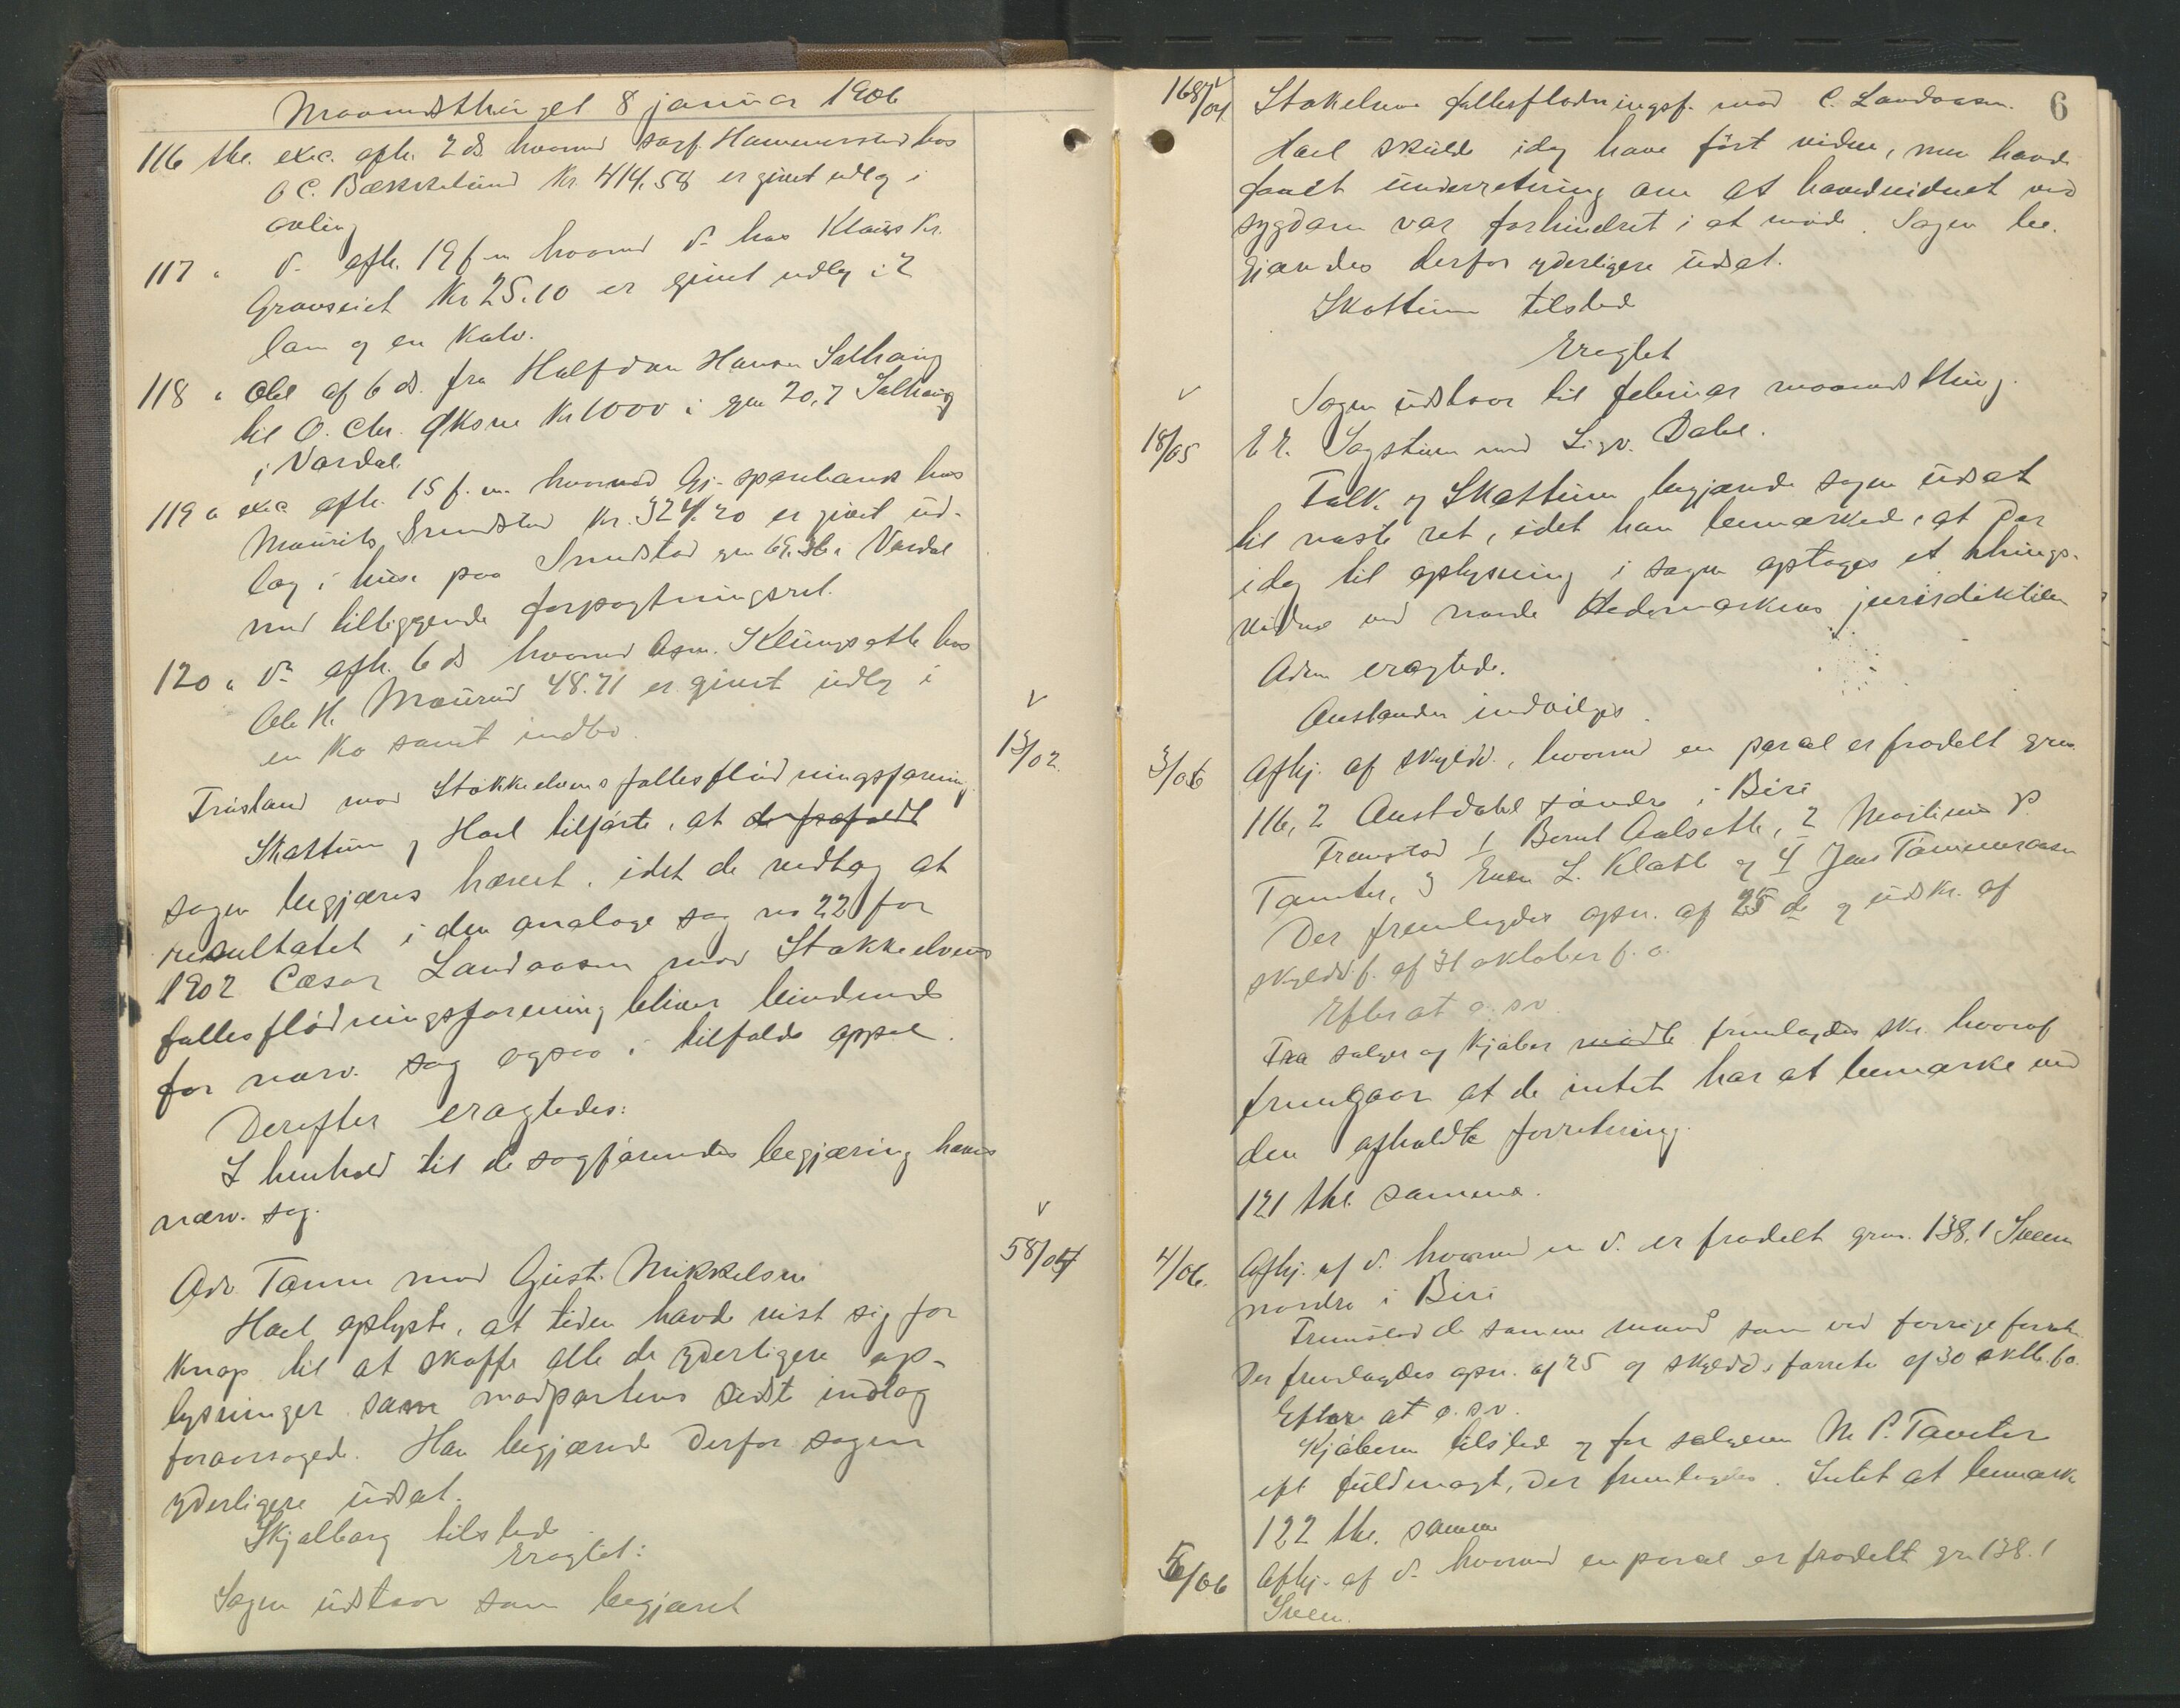 Maanedsthinget 8 januar 1906
116 thl. exec. afh. 2 ds. hvorved sagf. Hammerstad hos
O C. Bækkelund Kr. 414,58 er givet udlæg i
avling
117 " D. afh. 19 f. m hvorved D. hos Klaus Kr.
Gravseiet Kr 25.10 er givet udlæg i 2
lam og en Kalv.
118 " Obl af 6 ds. fra Halfdan Hansen Sathaug
til O. Chr. Kr 1000 i gn 20,7 Sathaug
i Vardal
119 " exec afh. 15 f. m. hvorved Gj. sparebank hos
Maurits Smedstad Kr. 324.20 er givet ud-
læg i huse paa Smedstad gn 69.36 i Vardal
med tilliggende forpagtningsret.
120 " D. afh. 6 ds hvorved Asm. Klungseth hos
Ole H. Maurud 48.71 er givet udlæg i
en Ko samt indbo.
v
13/02.
Frisland mod Stokkelvens fællesflødningsforening
Skattum og Hoel tilførte, at de frafaldt
sagen begjæres hævet, idet de vedtog at
resultatet i den analoge sag no 22 for
1902 Cæsar Landaasen mod Stokkelvens
fællesflødningsforening bliver bindende
for nærv. sag ogsaa i tilfælde appel.
Derefter eragtedes:
I henhold til de sagførendes begjæring hæves
nærv. sag.
v
58/04
Adv. Tamm mod Gust. Mikkelsen
Hoel oplyste, at tiden havde vist sig for
Knap til at skaffe alle de yderligere op-
lysninger som modpartens sidste indlæg
foraarsaged. Han begjærede derfor sagen
yderligere udsat.
Skjalborg tilstede.
Eragtet:
Sagen udstaar som begjæret
6
168/04 Stokelvens fællesflødningsf. mod C. Landaasen.
Hoel skulde idag have ført vidne, men havde
faaet underretning om at hovedvidnet ved
sygdom var forhindret i at møde. Sagen be-
gjæredes derfor yderligere udsat.
Skattum tilsted
Eragtet
v
Sagen udstaar til februar maanedsthing.
18/05 E E. Sagstuen mod Sigv. Dahl.
Falk og Skattum begjærede sagen udsat
til næste ret, idet han bemærkede, at der
idag til oplysning i sagen optages et things-
vidne ved nordre Hedemarkens jurisdiktion
Adm eragtede.
Anstanden indvilges.
3/06 Afhj. af skyldd., hvorved en parcel er fradelt gn.
116, 2 Austdahl søndre i Biri
Fremstod 1 Bernt Aalseth, 2 Martinus P.
Tømter, 3 Even L. Klæth og 4 Jens Tømmeraasen
Der fremlagdes opn. af 25 ds og udskr. af
skyldd.f. af 31 oktober f. a.
Efter at o. s. v
Fra sælger og Kjøber mødte fremlagdes skr. hvoraf
fremgaar at de intet har at bemærke ved
den afholdte forretning.
121 thl. samme.
4/06. Afhj. af D. hvorved en D. er fradelt gnr. 138.1 Sveen
nordre i Biri
Fremstod de samme mænd som ved forrige forret.
Der fremlagdes opn. af 25 og skyldd.s forretn. af 30 oktb. f.a.
Efter at o. s. v.
Kjøberen tilsted og for sælgeren M P. Tømter
eft fuldmagt, der fremlagdes. Intet at bemærke
122 thl. samme
5/06 Afhj. af D. hvorved en parcel er fradelt gn 138.1
Sveen.